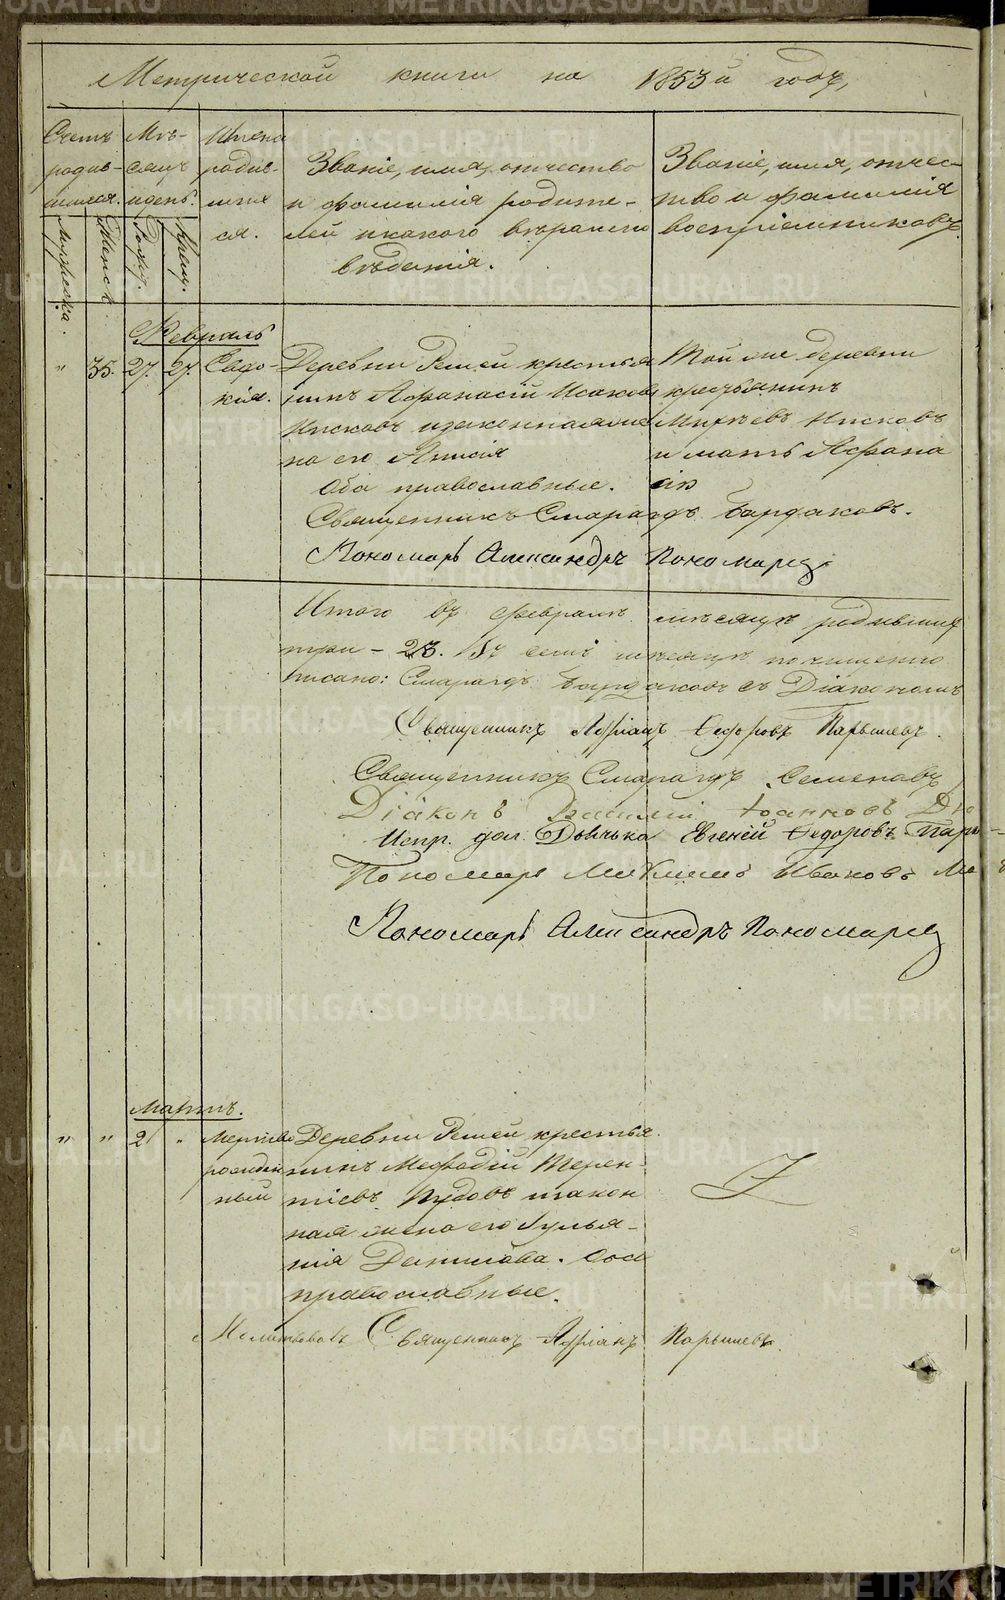 Метрической книги на 1853й годъ,
Счетъ родив-шихся.
Мѣ-сяцъ и день.
Имена родив-шихся.
Званіе, имя, отчество
и фамилія родите-
лей и какого вѣроиспо
вѣданія.
Званіе, имя, отчес-
тво и фамилія
воспріемниковъ.
Мужеска.
Женск.
Рожд.
Крещ.
Февраль
" 35. 27. 27. Евдо-
кія.
Деревни Решей крестья
нинъ Афанасій Исаковъ
и законная жена
на его Анисія
Оба православные.
Той же деревни
крестьянинъ
и мать Афана
сія
Священникъ Смарагдъ Бардаковъ.
Пономарь Александръ Пономарев
Итого въ февралѣ мѣсяцѣ родившихся
три - 23. Въ семъ мѣсяцѣ
писано: Смарагдъ Бардаковъ съ Діакономъ
Священникъ Адріанъ Федоровъ Парышевъ.
Священникъ Смарагдъ Семеновъ
Діаконъ Василій Іоанновъ
Испр. дол. Дьячька Евгеній Федоровъ Пары-
Пономарь Ивановъ
Пономарь Александръ Пономарев
Мартъ.
" " 2 " Мертво
рожден
ный
Деревни Решей крестья
нинъ Мефодій Терен-
тіевъ законная
жена его Улья-
нія Данилова. Оба
православные.
Священникъ Адріанъ Парышевъ.
METRIKI.GASO-URAL.RU